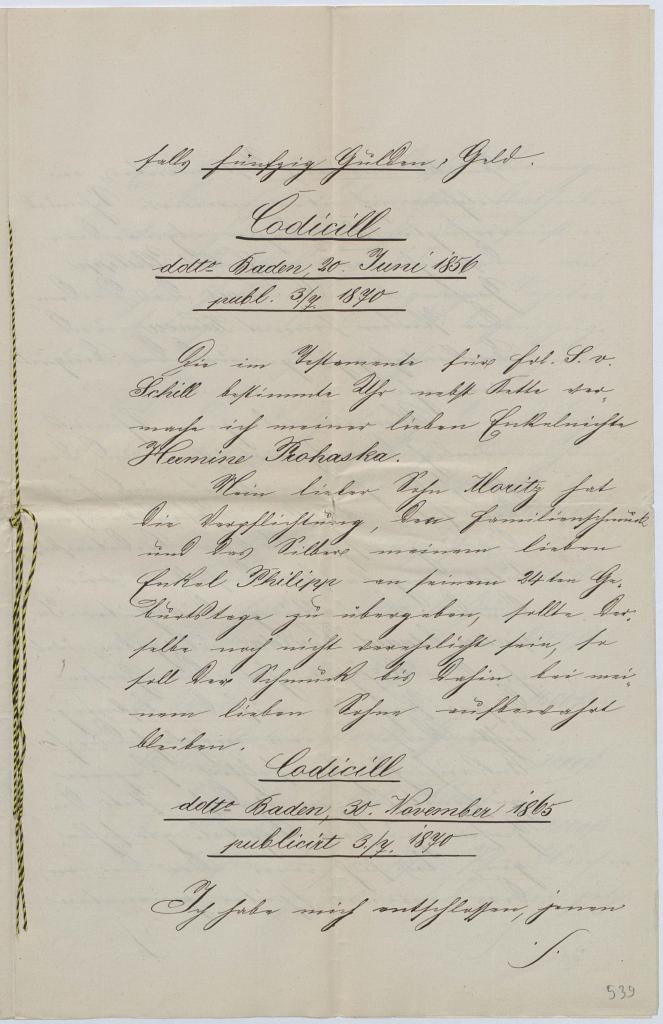 falls fünfzig Gulden, Geld.
Codicill
ddto Baden, 20. Juni 1856
publ. 3/7. 1870
Die im Testamente für Frl. S. v.
Schell bestimmte Uhr nebst Kette ver-
mache ich meiner lieben Enkelnichte
Hermine Prohaska.
Mein lieber Sohn Moritz hat
die Verpflichtung, den Familienschmuck
und das Silber meinem lieben
Enkel Philipp an seinem 24ten Ge-
burtstage zu übergeben, sollte der-
selbe noch nicht verehelicht sein, so
soll der Schmuck bis dahin bei mei-
nem lieben Sohne aufbewahrt
bleiben.
Codicill
ddto Baden, 30. November 1865
publicirt 3./7. 1870
Ich habe mich entschlossen, jenen
539